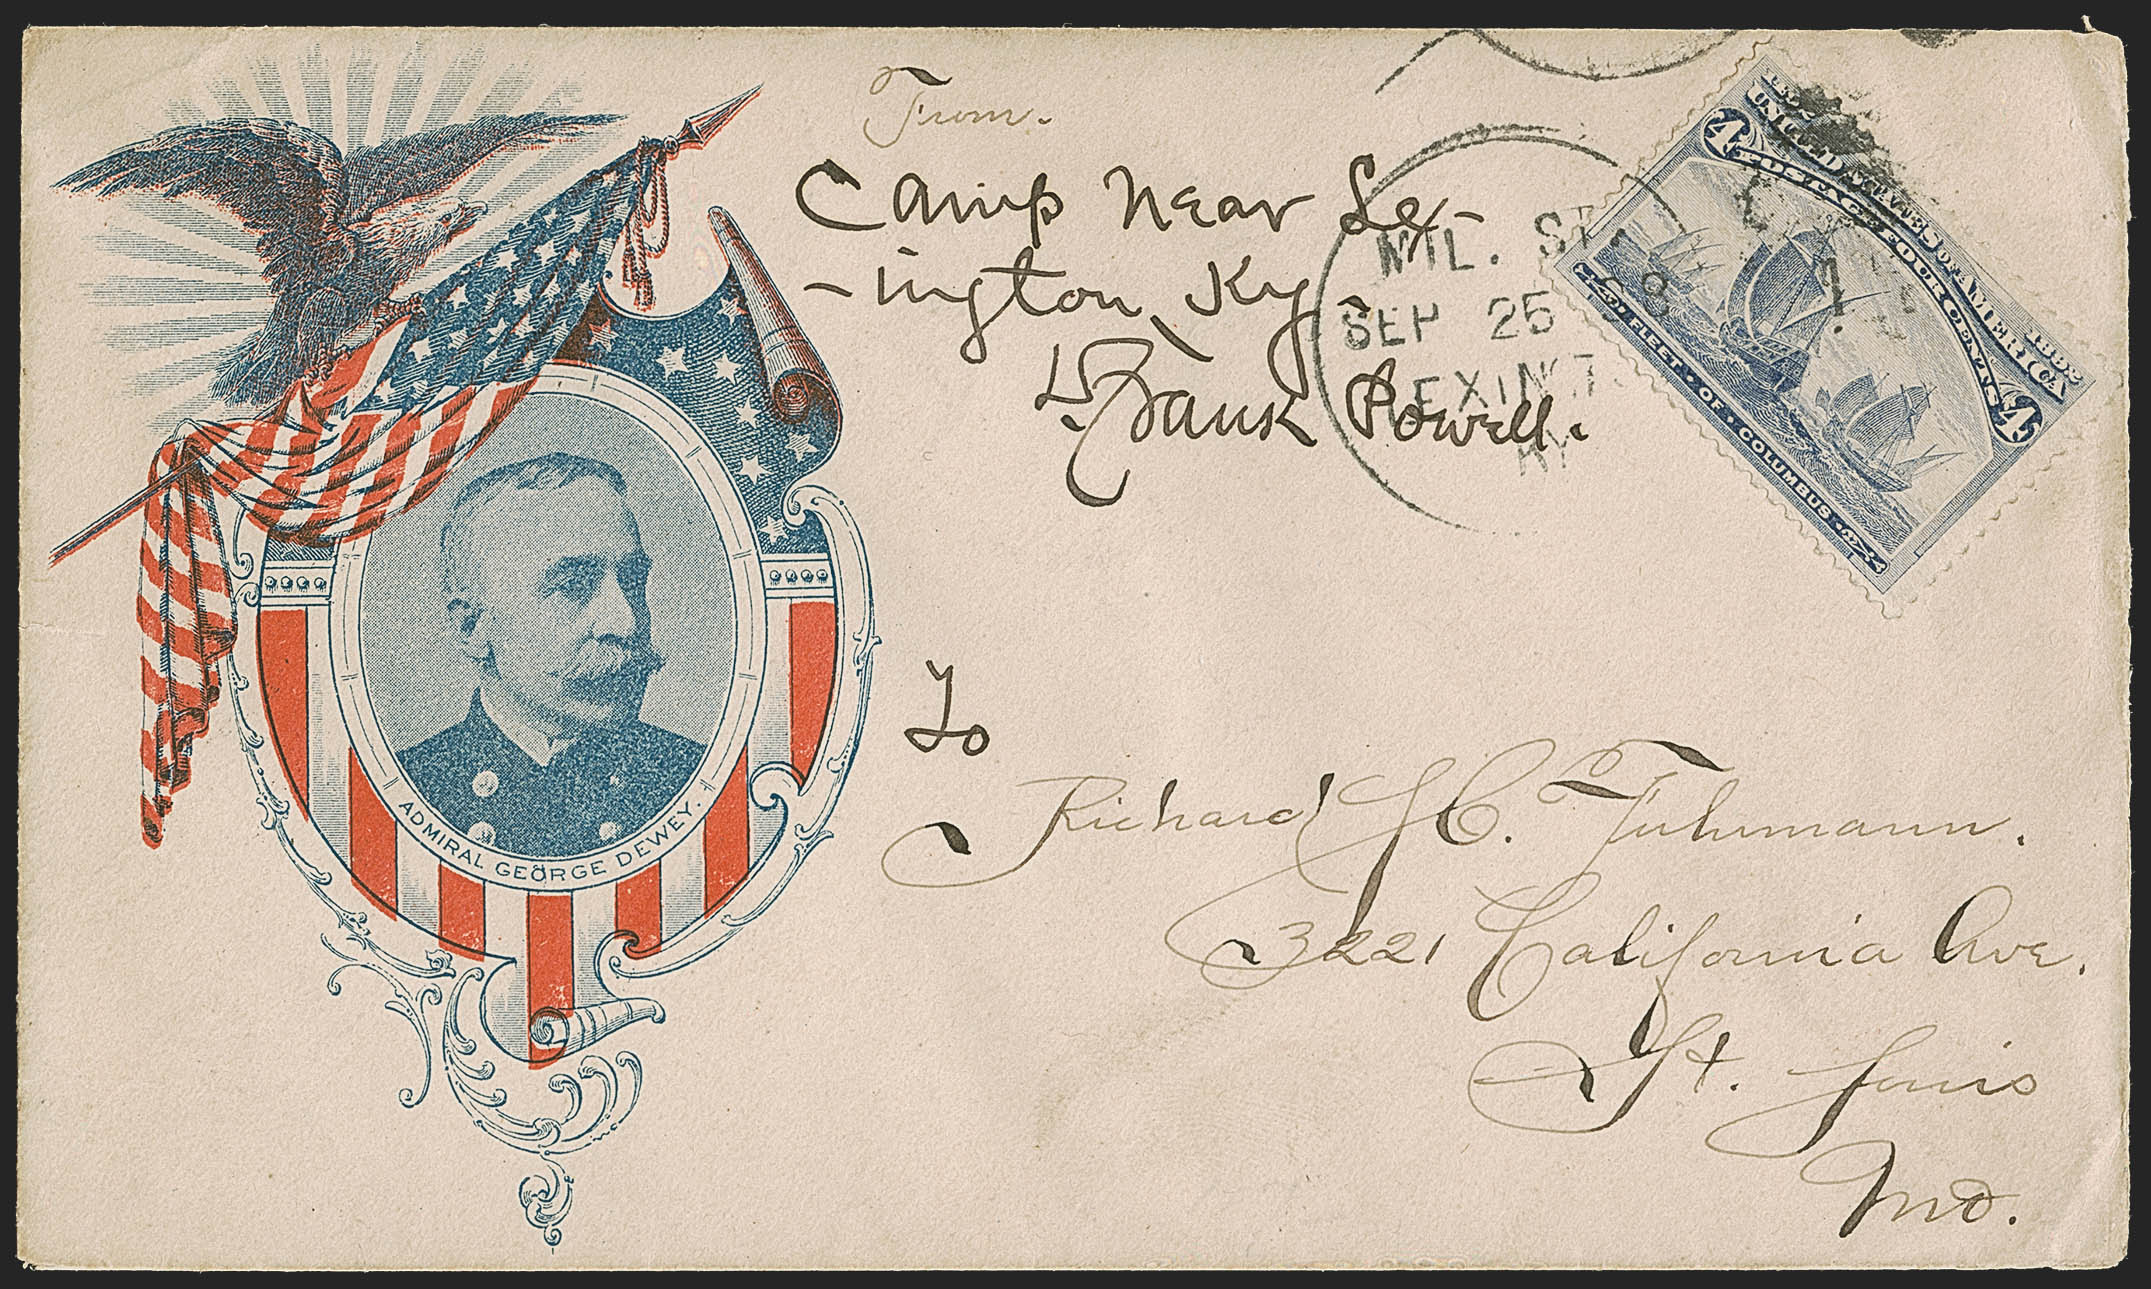 From.
Camp Near Lex-
-ington, Ky
Frank Powell.
MIL. ST.
SEP 25
98
LEXINGT
KY
1492
1892
UNITED STATES OF AMERICA
POSTAGE FOUR CENTS
4
4
FLEET · OF · COLUMBUS
ADMIRAL GEORGE DEWEY.
To
Richard H. Fuhrmann.
3221 California Ave.
St. Louis
Mo.